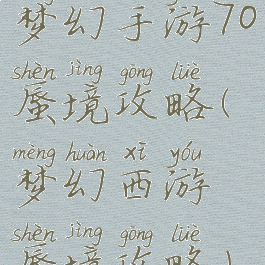 梦幻手游70
shèn jìng gōng lüè
蜃境攻略(
mèng huàn xī yóu
梦幻西游
shèn jìng gōng lüè
蜃境攻略)